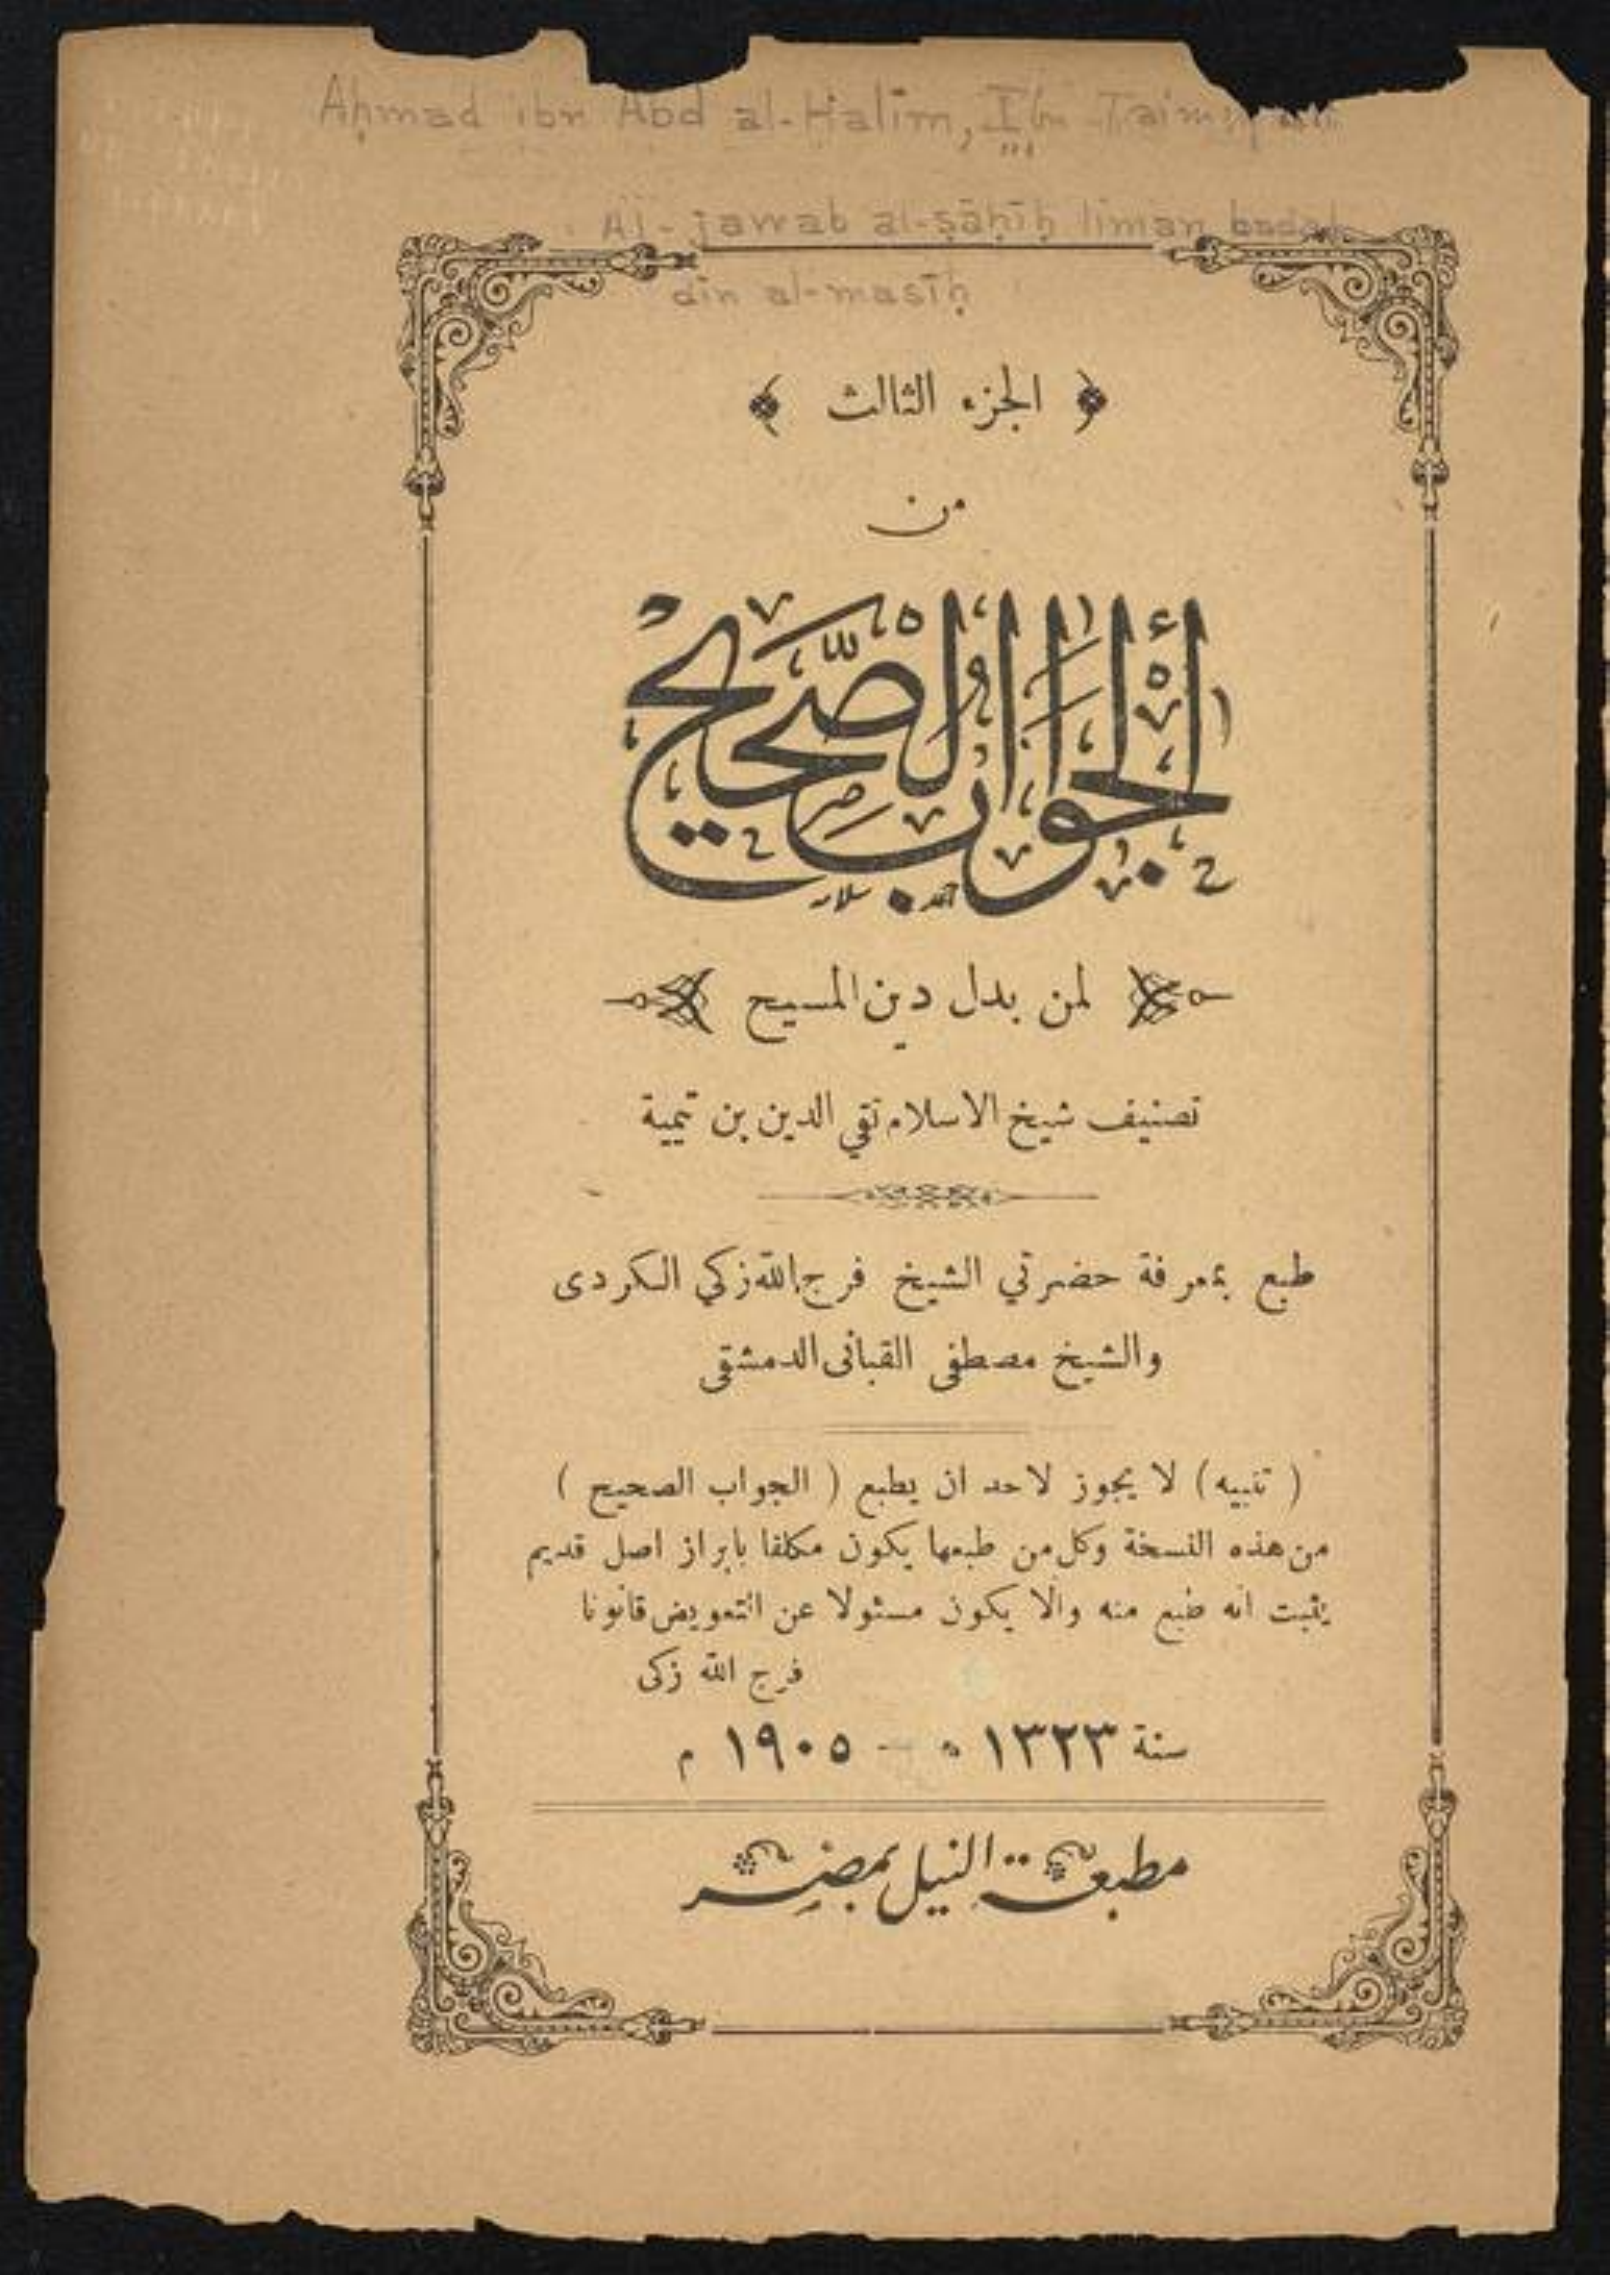 Aḥmad ibn Abd al-Ḥalīm, Ibn
Al-jawab al-ṣāḥīḥ liman badal
dīn al-masīḥ
﴿ الجزء الثالث ﴾
من
أَلْجَوَابُ الصَّحِيْحُ
لمن بدل دين المسيح
تصنيف شيخ الاسلام تقي الدين بن تيمية
طبع بمعرفة حضرتي الشيخ فرج الله زكي الكردى
والشيخ مصطفى القبانى الدمشقى
( تنبيه ) لا يجوز لاحد ان يطبع ( الجواب الصحيح )
من هذه النسخة وكل من طبعها يكون مكلفا بابراز اصل قديم
يثبت انه طبع منه والا يكون مسئولا عن التعويض قانونا
فرج الله زكى
سنة ١٣٢٣ ه – ١٩٠٥ م
مطبعة النيل بمصر